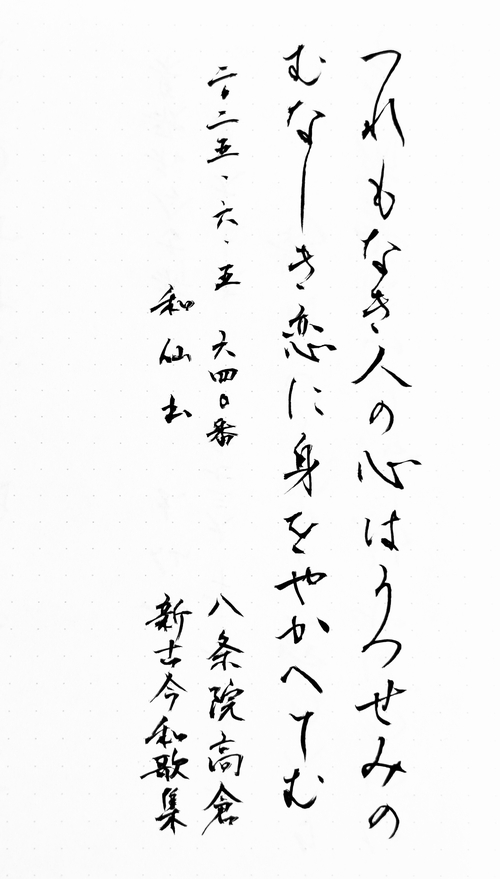 つれもなき人の心はうつせみの
むなしき恋に身をやかへてむ
二〇二五、六、五　六四〇番
八条院高倉
和仙書
新古今和歌集